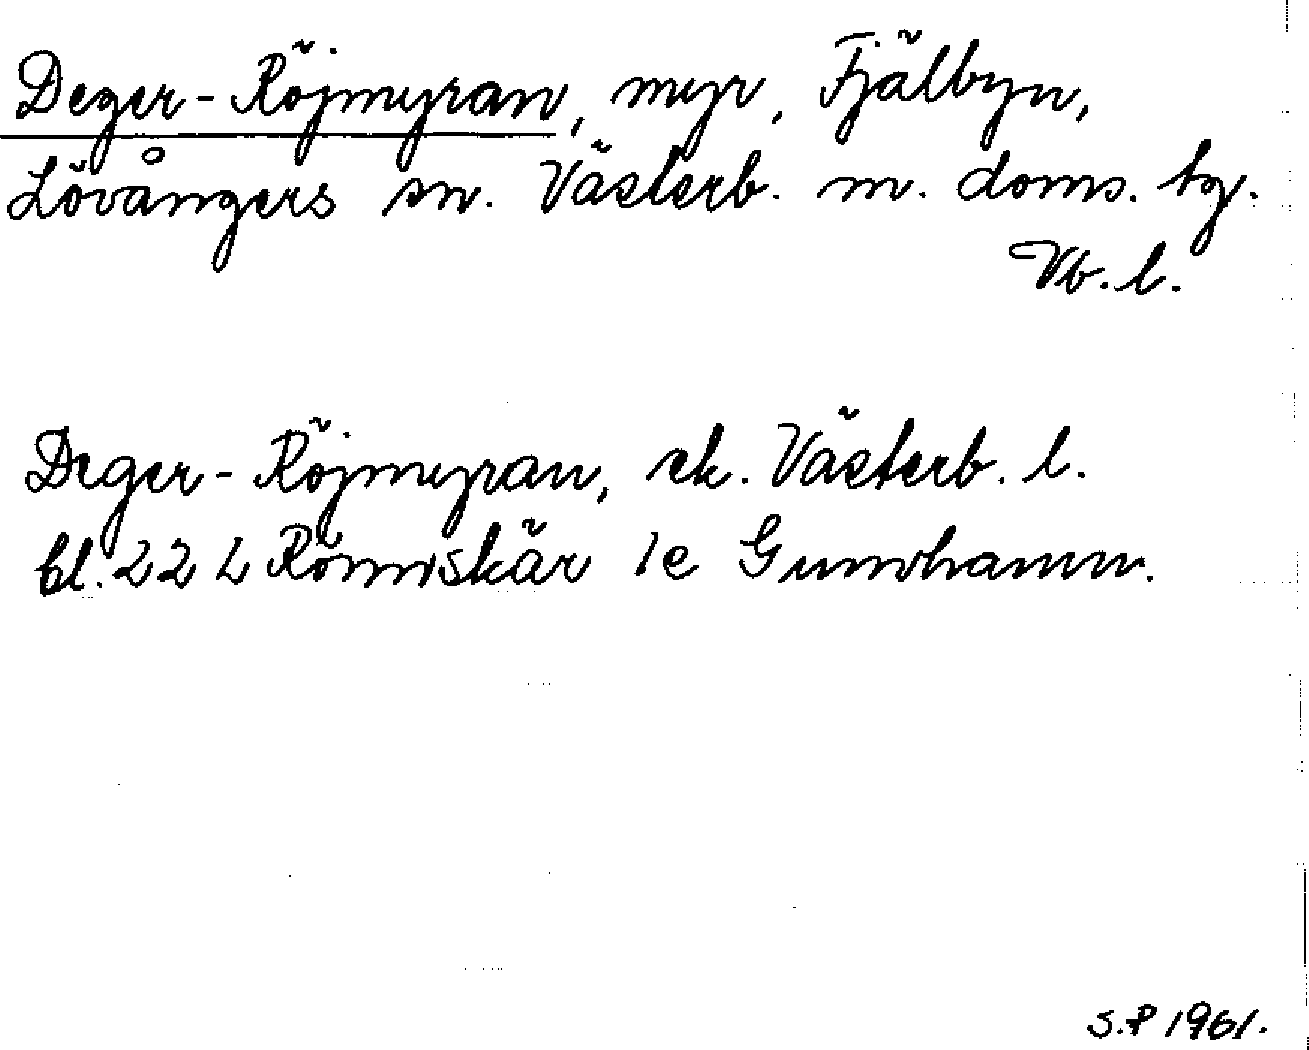 Deger-Röjmyran, myr, Fjälbyn,
Lövångers sn. Västerb. n. doms. tg.
Vb. l.
Deger-Röjmyran, ek. Västerb. l.
bl. 22 L Rönnskär 1e Gumhamn.
S.P 1961.